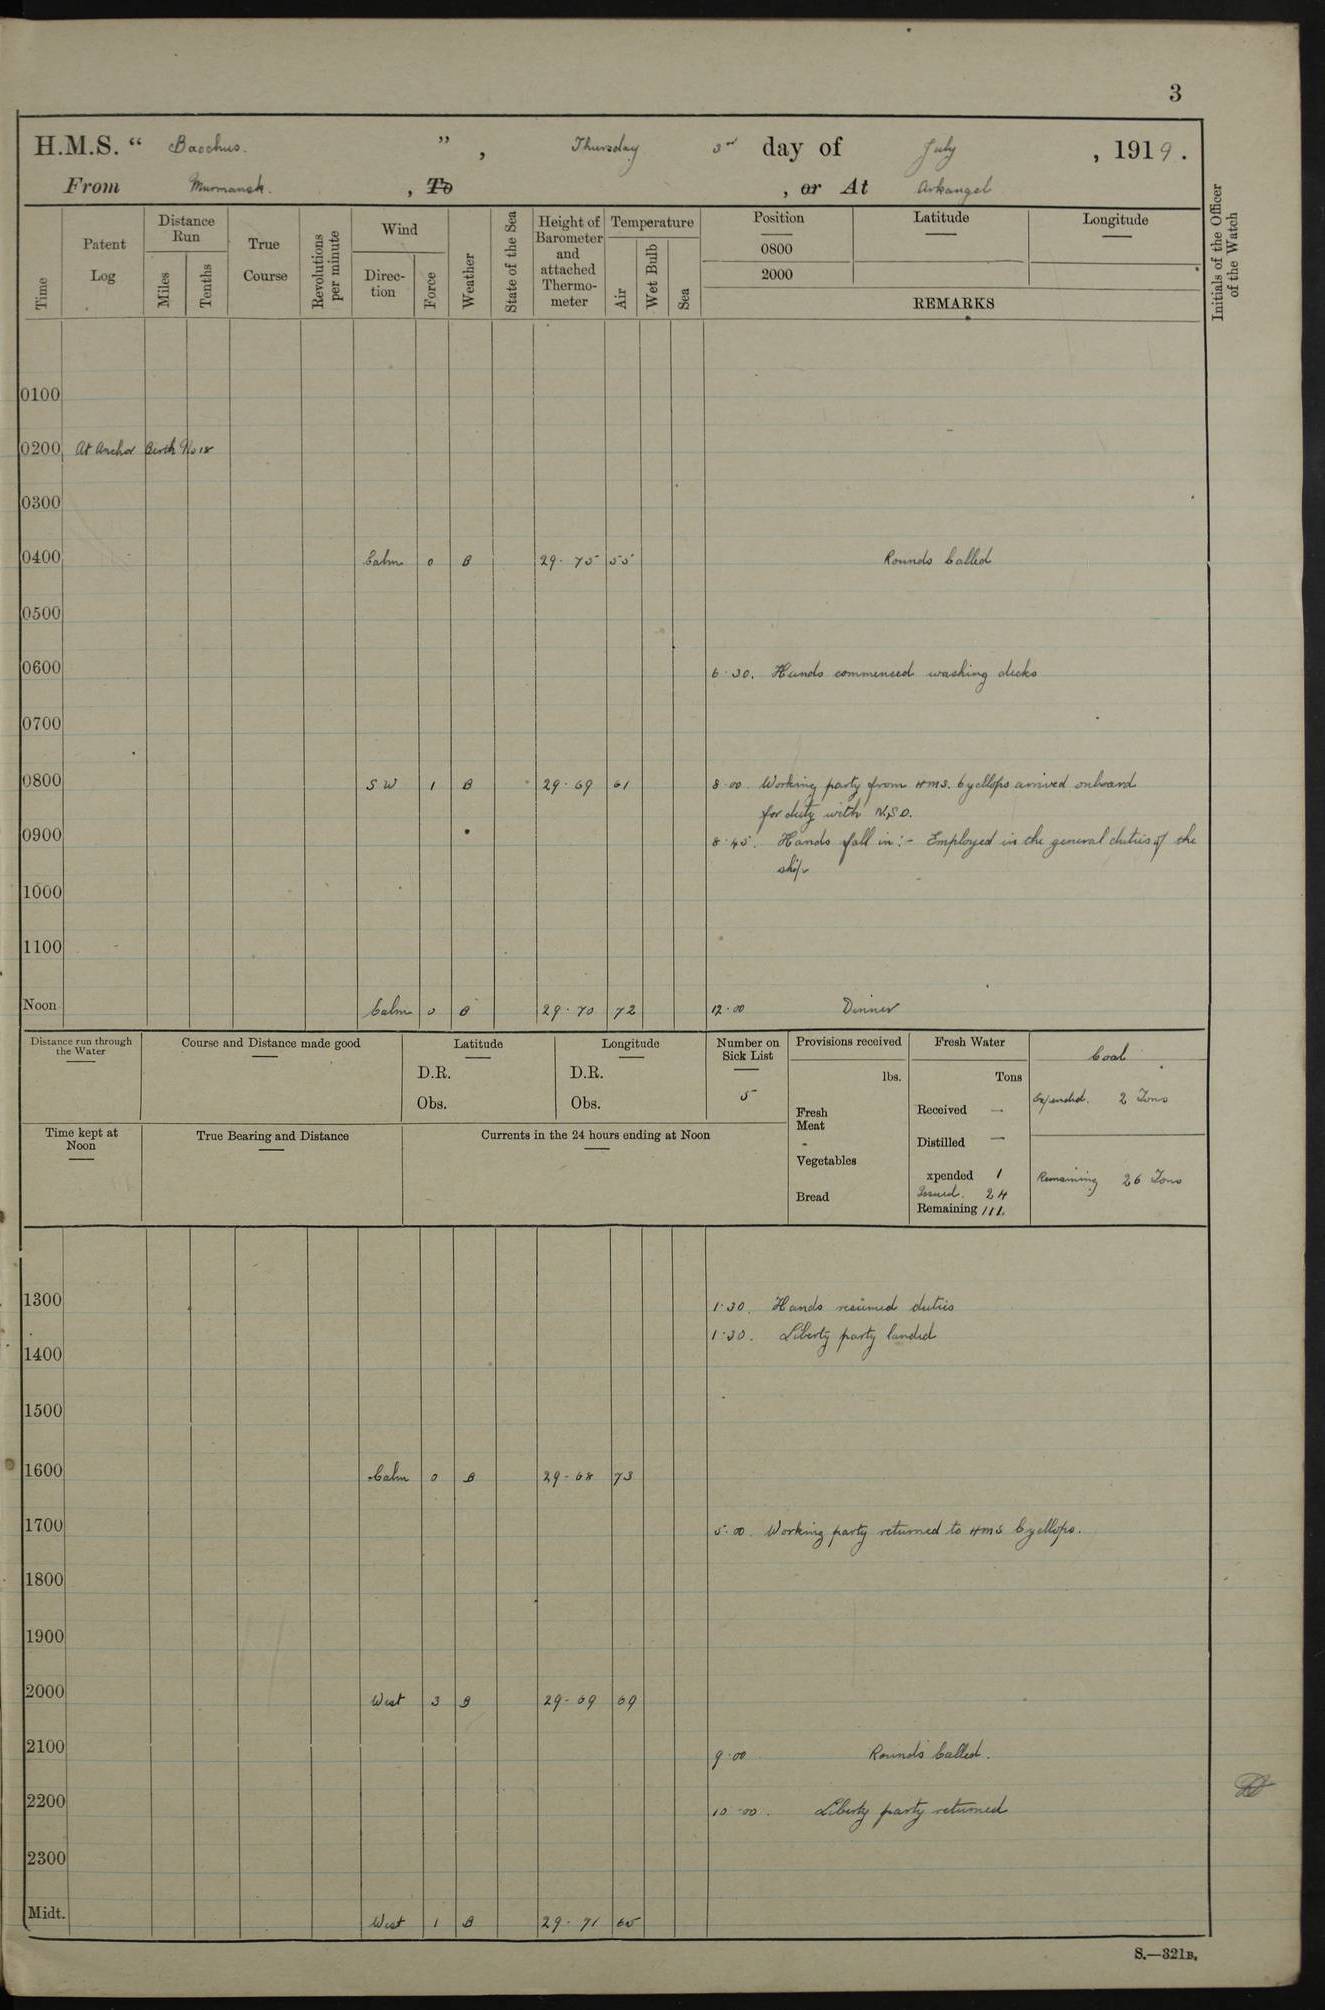 3
H.M.S. “ Bacchus. ” , Thursday 3rd day of July , 1919 .
From Murmansk. , To , or At Arkangel
Time
Patent Log
Distance Run
Miles
Tenths
True Course
Revolutions per minute
Wind
Direc-tion
Force
Weather
State of the Sea
Height of Barometer and attached Thermo-meter
Temperature
Air
Wet Bulb
Sea
Position
Latitude
Longitude
0800
2000
REMARKS
Initials of the Officer of the Watch
0100
0200 At Anchor Birth No 18
0300
0400 Calm 0 B 29.75 55 Rounds Called
0500
0600
6.30. Hands commenced washing decks
0700
0800 SW 1 B 29.69 61 8.00. Working party from HMS. Cycllops arrived onboard
for duty with N.S.O.
0900 8.45. Hands fall in :- Employed in the general duties of the
ship
1000
1100
Noon Calm 0 B 29.70 72 12.00 Dinner
Distance run through the Water
Course and Distance made good
Latitude
D.R.
Obs.
Longitude
D.R.
Obs.
Number on Sick List
5
Provisions received
lbs.
Fresh Meat
Vegetables
Bread
Fresh Water
Tons
Received —
Distilled —
xpended 1
Issued. 24
Remaining 111
Coal
Expended. 2 Tons
Remaining 26 Tons
Time kept at Noon
True Bearing and Distance
Currents in the 24 hours ending at Noon
1300 1.30. Hands resumed duties
1.30. Liberty party landed
1400
1500
1600 Calm 0 B 29.68 73
1700 5.00. Working party returned to HMS Cycllops.
1800
1900
2000 West 3 B 29.69 69
2100 9.00 Rounds Called.
2200 10.00. Liberty party returned
2300
Midt. West 1 B 29.71 65
S.—321B.